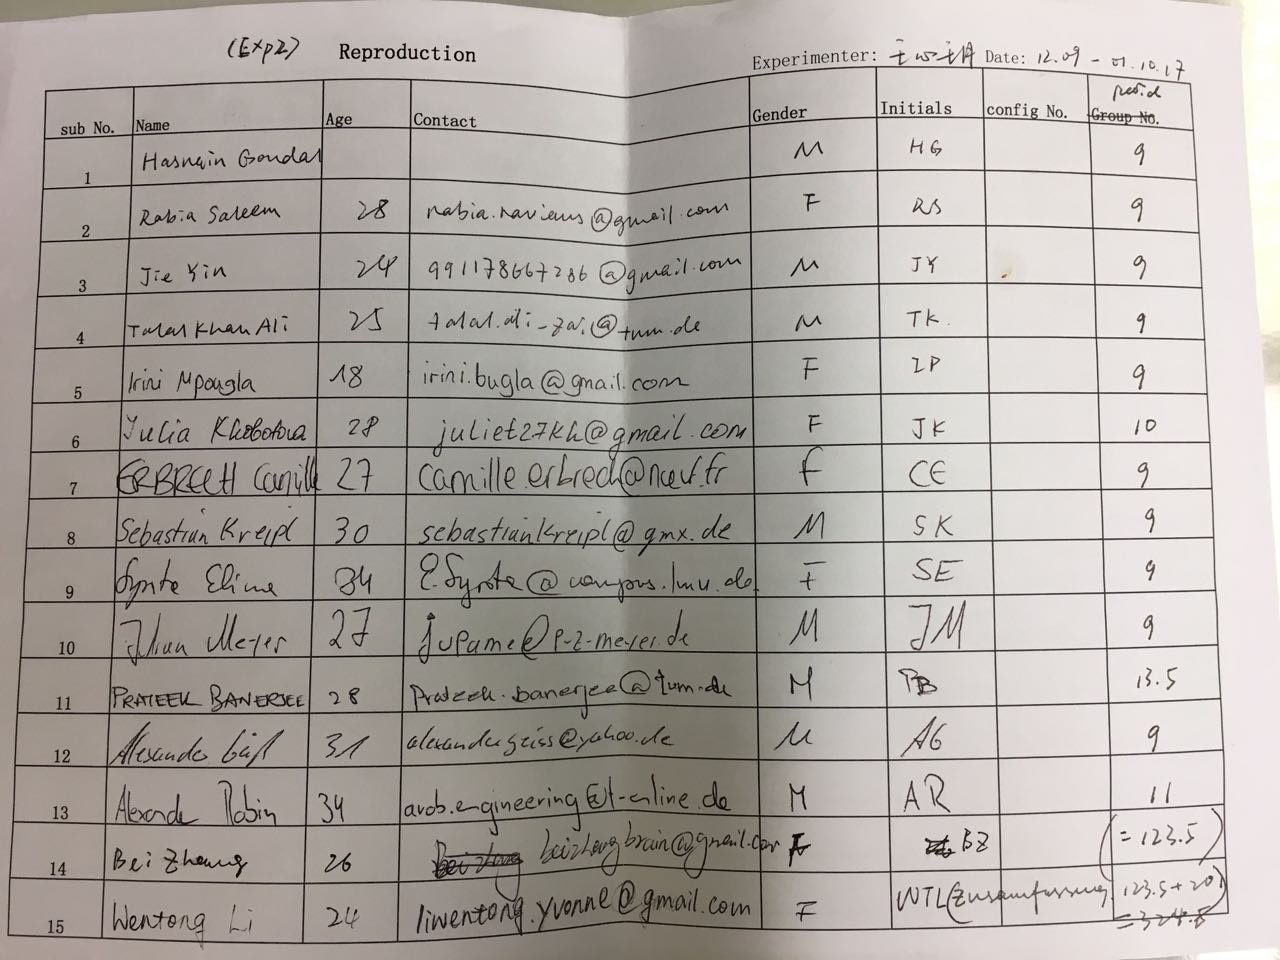 (Exp2) Reproduction Experimenter: Date: 12.09 - 01.10.17
sub No. Name Age Contact Gender Initials config No. period Group No.
1 Hasnain Gondal M HG 9
2 Rabia Saleem 28 @gmail.com F RS 9
3 Jie Yin 24 991178667286@gmail.com M JY 9
4 Talal Khan Ali 25 talal.ali-zai@tum.de M TK. 9
5 Irini Mpougla 18 irini.bugla@gmail.com F IP 9
6 Yulia Khobotova 28 juliet27kh@gmail.com F JK 10
7 ERBRECH Camille 27 F CE 9
8 Sebastian Kreipl 30 sebastiankreipl@gmx.de M SK 9
9 Syrota Elina 34 E.Syrota@campus.lmu.de F SE 9
10 Julian Meyer 27 jupame@p-z-meyer.de M JM 9
11 PRATEEK BANERJEE 28 prateek.banerjee@tum.de M PB 13.5
12 Alexander 31 alexandergeiss@yahoo.de M AG 9
13 Robin 34 arob.engineering@t-online.de M AR 11
14 Bei Zhang 26 Bei zhang beizhangbrain@gmail.com F BZ (=123.5)
15 Wentong Li 24 liwentong.yvonne@gmail.com F WTL (Zusammenfassung 123.5+201)
=324.5